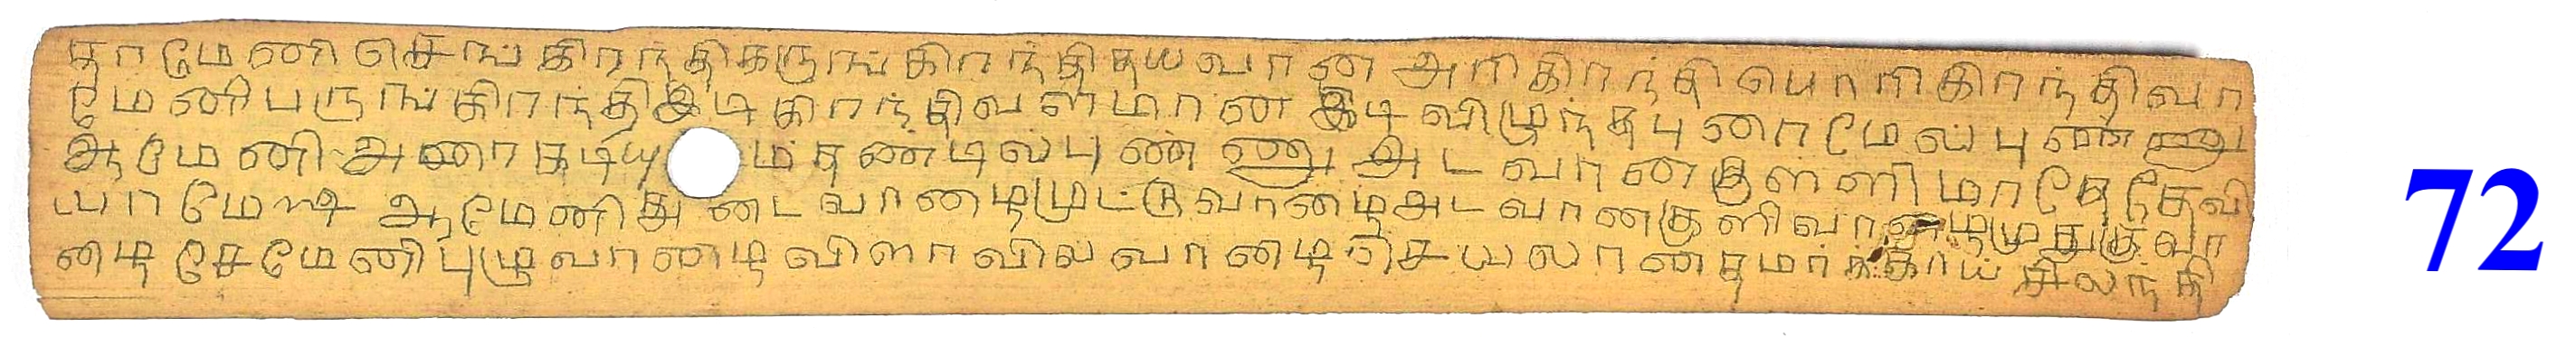 தாமேனி செங்கிரந்தி கருங்கிரந்திதயவான அரிகிரந்தி பொரிகிரந்திவா
மேனி பருங்கிரந்தி இடிகரந்திவளமான இடிவிமுந்தபுரைமேல் புண்ணு
ஆமேனி அரைகடியு மதண்டில்புண்ணு அடவான குள்ளிமாதேதேவி
யாமேடி ஆமேனி துடைவாழைமுட்டுவாழைஅடவானகுளிவாழைமுதுகுவா
ழை சேமேனி புழுவாழை விளாவில்வாழை செயலானதமர்க்காய் சிலந்தி
72